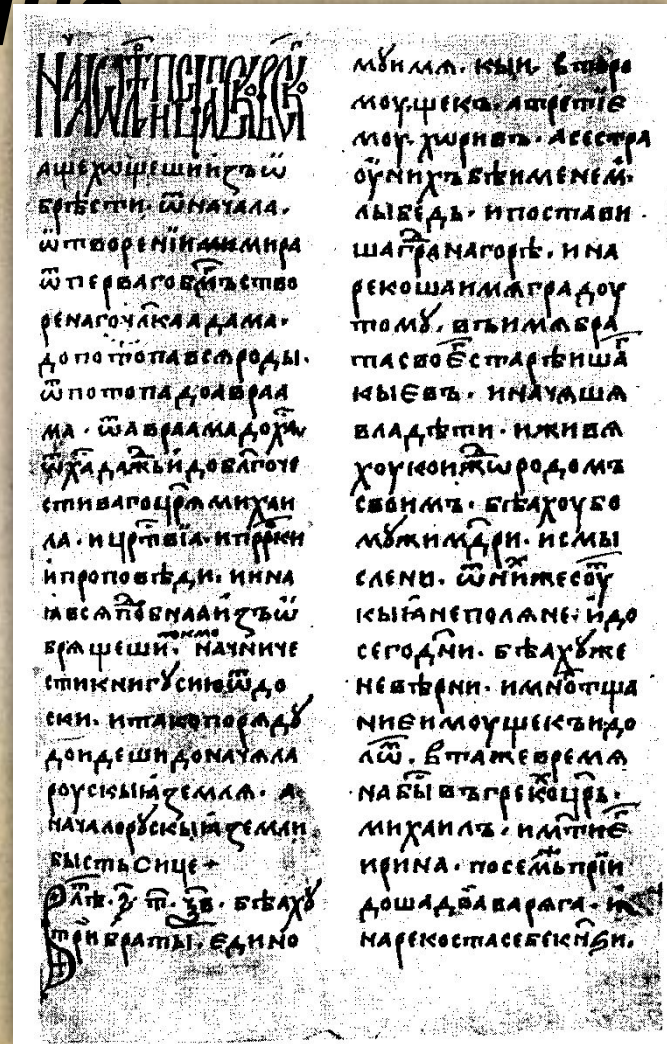 аще хощеши изъѡ
брѣсти. ѿначала.
ѿтворенїи мира
ѿперваго бм҃ъ ство
ренаго чл҃ка адама.
до потопа вся роды.
ѿпотопа до авраа
ма. ѿавраама до ха҃
ѿха҃ даже и до бл҃гоче
стиваго цр҃я михаи
ла. и цр҃твїа. и пр҃рки
и проповѣди. и ина
ꙗ вся подобнаа изъѡ
брящеши. токмо начни че
сти книгу сию ѿдо
ски. и тако по ряду
доидеши до начяла
роускыꙗ земля. а
начало рускыꙗ земли
бысть сице +
В лѣ. ҂ѕ҃. т҃. ѯ҃в. бѣаху
три браты. едино
мꙋ имя. кыи. второ
моу. щекъ. а третїе
моу. хѡривъ. а сестра
оу них бѣ именем.
лыбедь. и постави
ша гра҃ на горѣ. и на
рекоша имя градоу
томꙋ. въ имя бра
та своє старѣиша҃
кыевъ. и начяшя
владѣти. и живя
хоу коиж҃ѡ родомъ
своимъ. бѣахоу бо
мꙋжи мд҃ри. и смы
слены. ѿних же соу҃
кыꙗне поляне. и до
сегодни. бѣахꙋ же
невѣрни. и мнѡ҃ тща
ние имоу щекъ и до
лѿ. в та же время
на бы҃ въ грекох цр҃ь.
михаилъ. и мт҃и е҃
ирина. по сем прїи
дошад҃ва варяга. и
нарекостасебе кн҃зи.